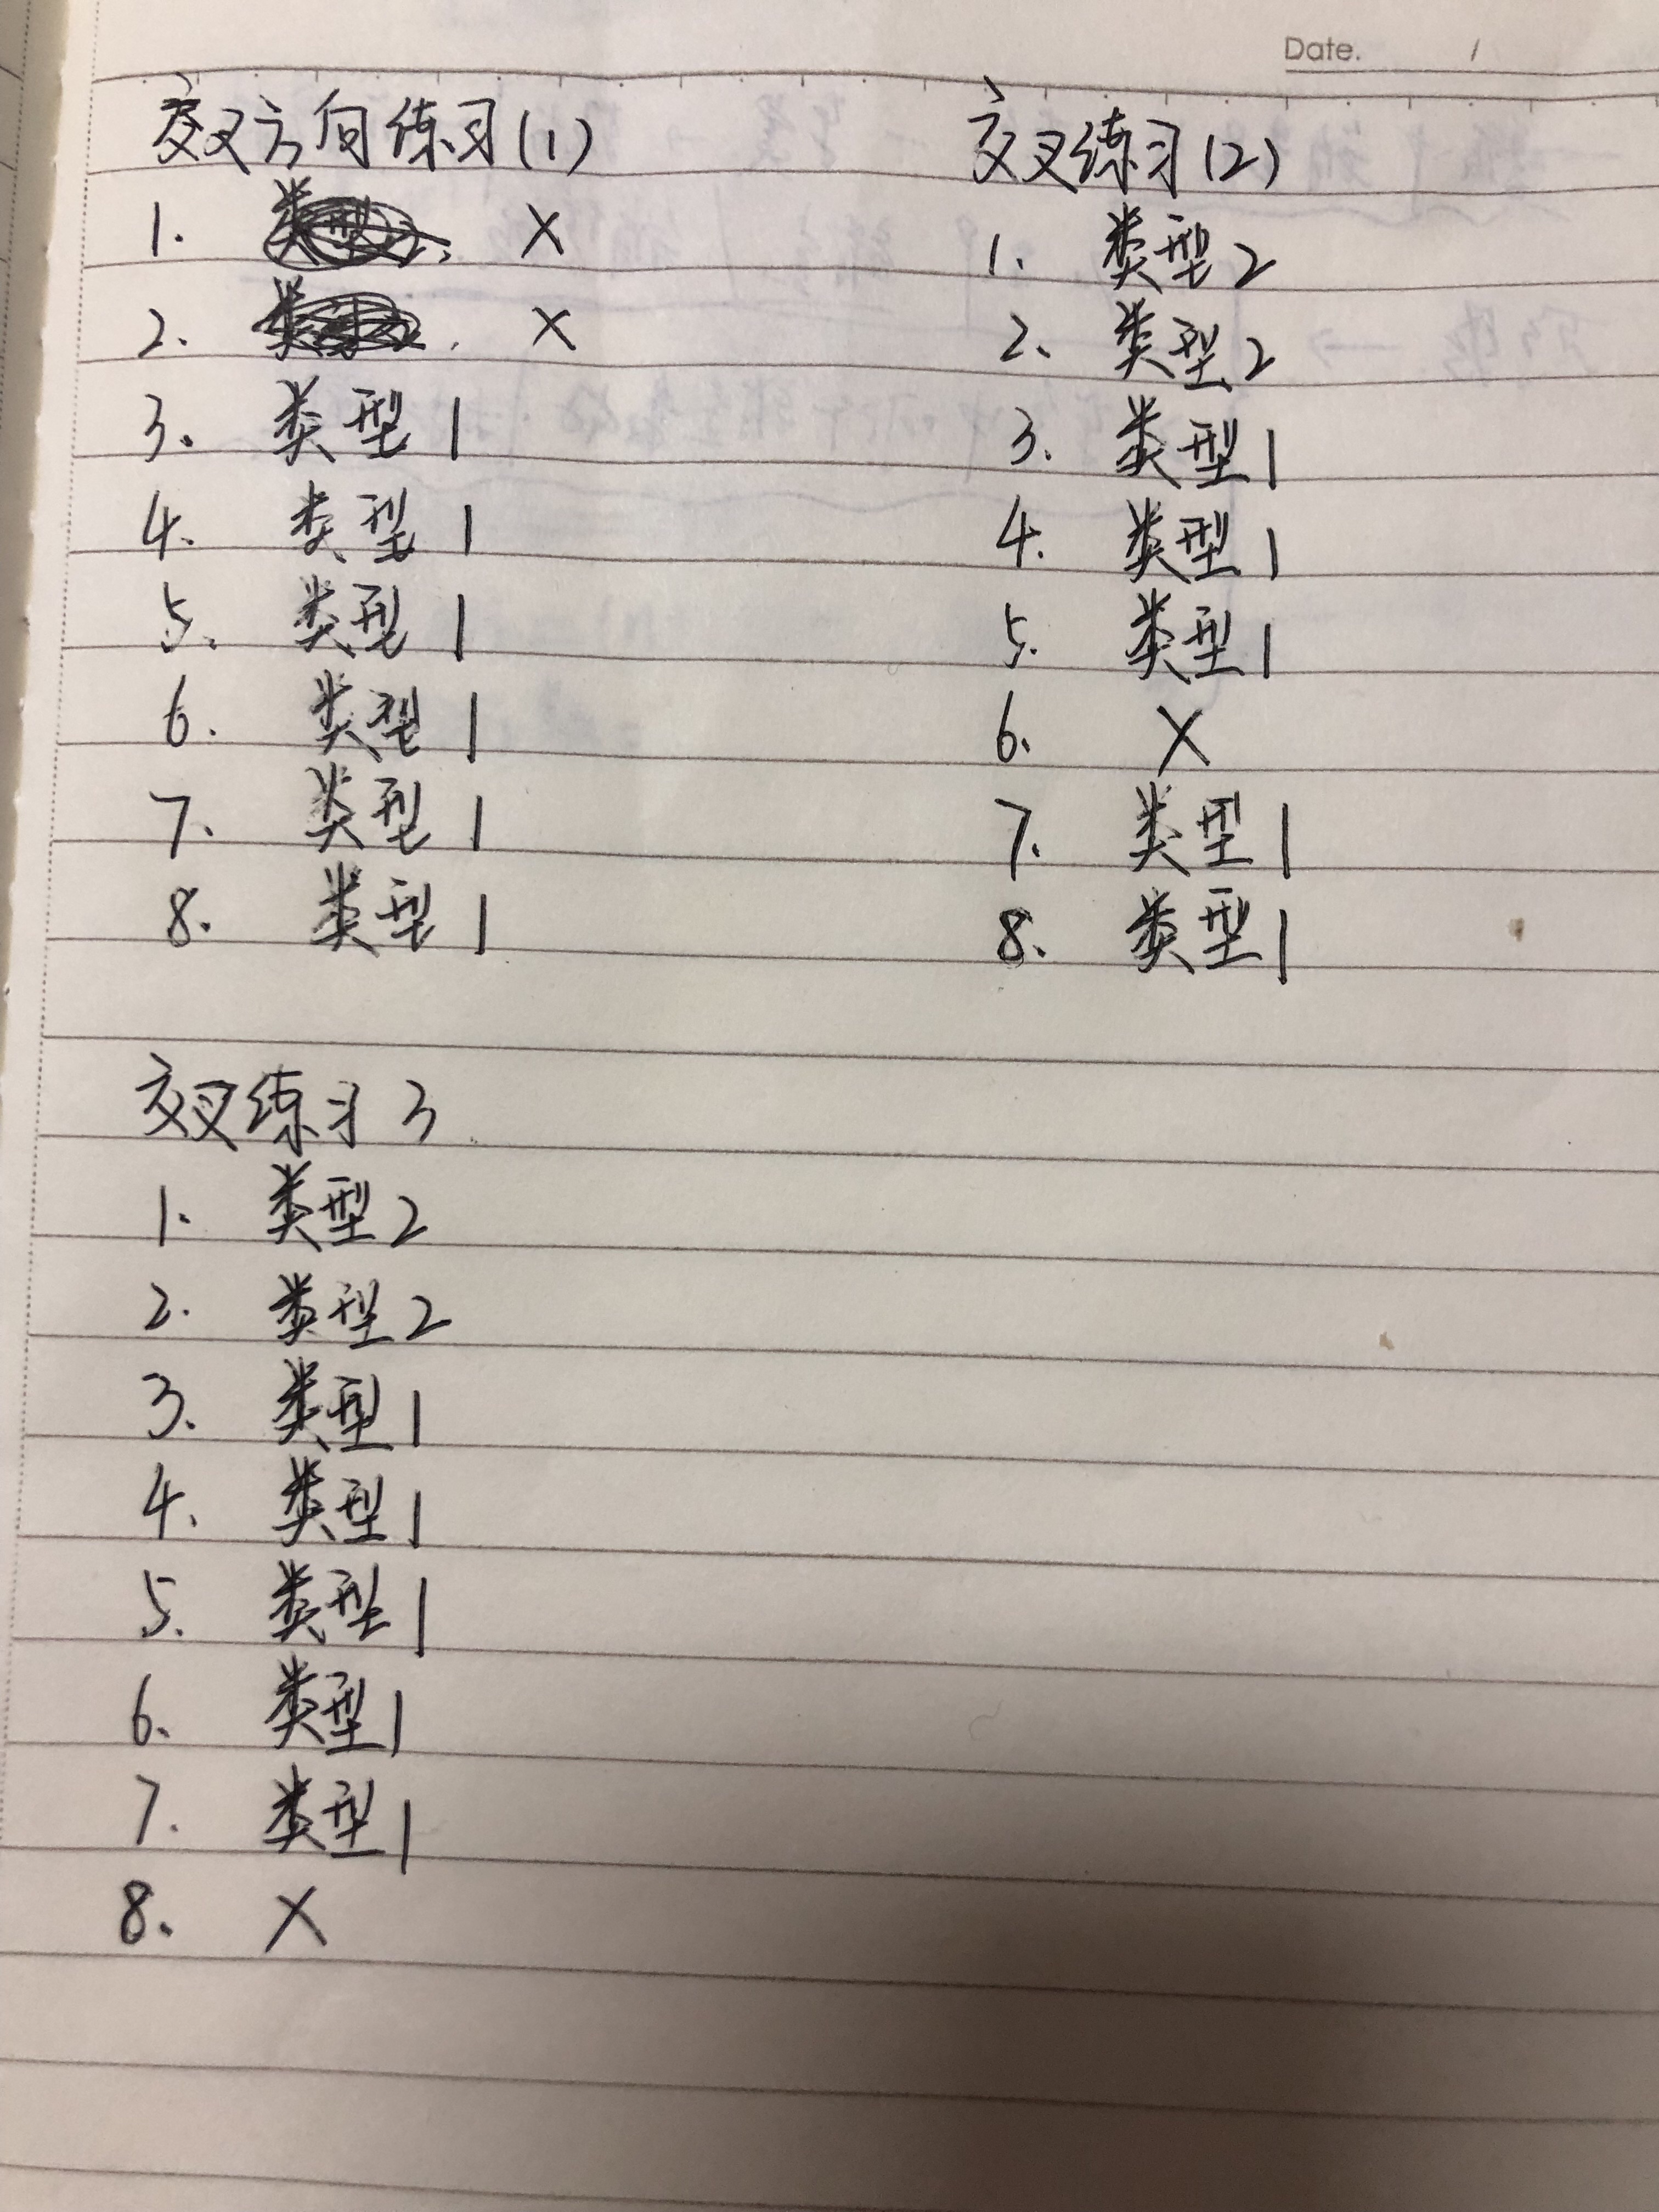 Date. /
交叉方向练习(1)
1. X
2. X
3. 类型1
4. 类型1
5. 类型1
6. 类型1
7. 类型1
8. 类型1
交叉练习(2)
1. 类型2
2. 类型2
3. 类型1
4. 类型1
5. 类型1
6. X
7. 类型1
8. 类型1
交叉练习3
1. 类型2
2. 类型2
3. 类型1
4. 类型1
5. 类型1
6. 类型1
7. 类型1
8. X